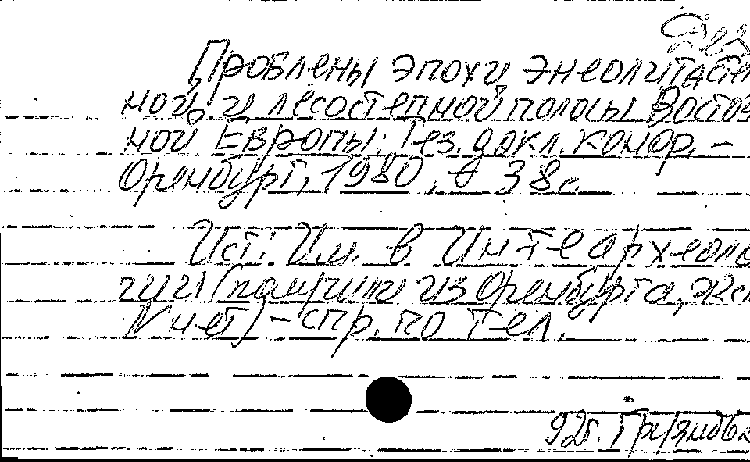 Проблемы эпохи энеолита степ
ной и лесостепной полосы Восточ
ной Европы: Тез. докл. конф. –
Оренбург, 1980. 38 с.
Ист: Им. в Ин-те археоло
гии (получили из Оренбурга, экз
№ нет) – спр. по тел.
92б.